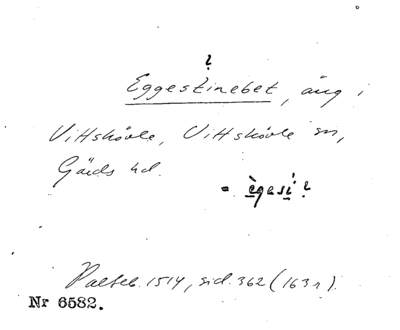 ?
Eggestinebet, äng i
Vittskövle, Vittskövle sn,
Gärds hd.
= ègesi ?
Palteb. 1514, sid. 362 (1631).
Nr 6582.